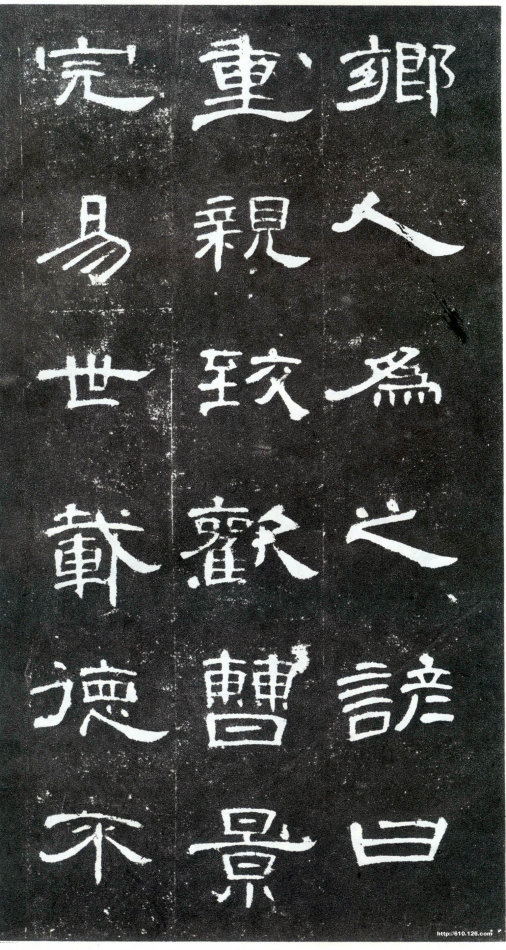 鄉人爲之諺曰
重親致歡曹景
完易世載德不
http://610.126.com